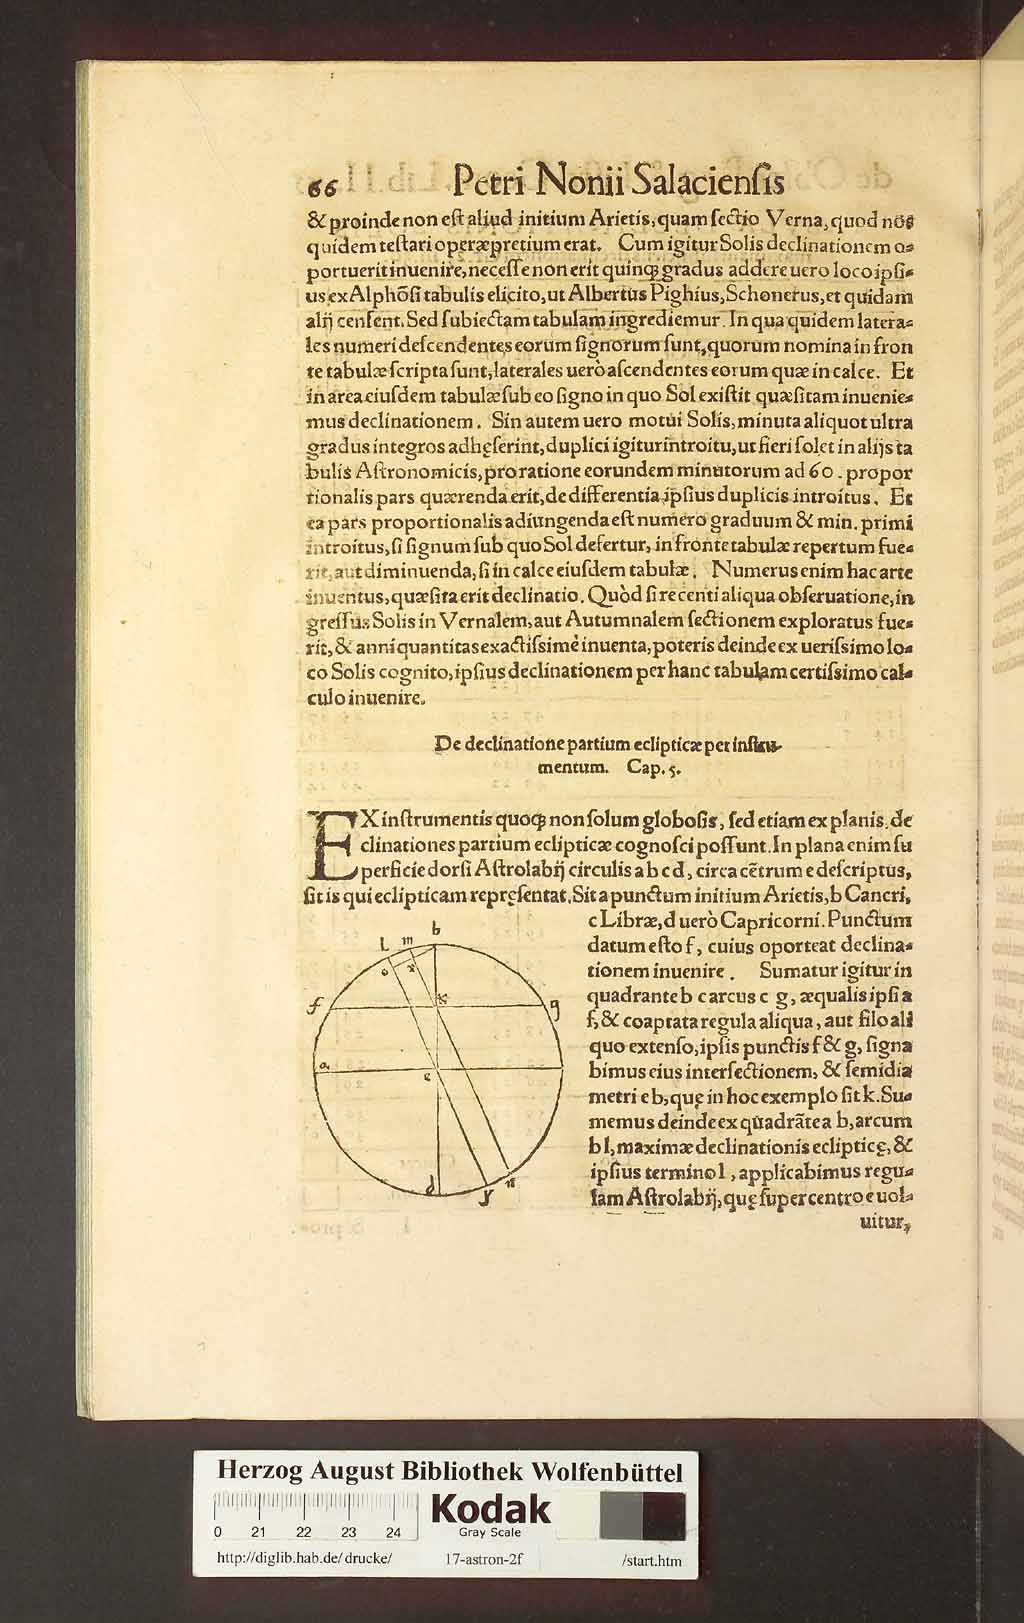 66 Petri Nonii Salaciensis
& proinde non est aliud initium Arietis, quam sectio Verna, quod nōs
quidem testari operæpretium erat. Cum igitur Solis declinationem o-
portuerit inuenire, necesse non erit quinq; gradus addere uero loco ipsi-
us, ex Alphōsi tabulis elicito, ut Albertus Pighius, Schonerus, et quidam
alij censent. Sed subiectam tabulam ingrediemur. In qua quidem latera-
les numeri descendentes eorum signorum sunt, quorum nomina in fron
te tabulæ scripta sunt, laterales uerò ascendentes eorum quæ in calce. Et
in area eiusdem tabulæ sub eo signo in quo Sol existit quæsitam inuenie-
mus declinationem. Sin autem uero motui Solis, minuta aliquot ultra
gradus integros adhęserint, duplici igitur introitu, ut fieri solet in alijs ta
bulis Astronomicis, pro ratione eorundem minutorum ad 60. propor
tionalis pars quærenda erit, de differentia ipsius duplicis introitus. Et
ea pars proportionalis adiungenda est numero graduum & min. primi
introitus, si signum sub quo Sol defertur, in fronte tabulæ repertum fue-
rit, aut diminuenda, si in calce eiusdem tabulæ. Numerus enim hac arte
inuentus, quæsita erit declinatio. Quòd si recenti aliqua obseruatione, in
gressus Solis in Vernalem, aut Autumnalem sectionem exploratus fue-
rit, & anni quantitas exactissimè inuenta, poteris deinde ex uerissimo lo-
co Solis cognito, ipsius declinationem per hanc tabulam certissimo cal-
culo inuenire.
De declinatione partium eclipticæ per instru-
mentum. Cap. 5.
EX instrumentis quoq; non solum globosis, sed etiam ex planis, de
clinationes partium eclipticæ cognosci possunt. In plana enim su
perficie dorsi Astrolabij circulis a b c d, circa cētrum e descriptus,
sit is qui eclipticam repręsentat. Sit a punctum initium Arietis, b Cancri,
c Libræ, d uerò Capricorni. Punctum
datum esto f, cuius oporteat declina-
tionem inuenire. Sumatur igitur in
quadrante b c arcus c g, æqualis ipsi a
f, & coaptata regula aliqua, aut filo ali
quo extenso, ipsis punctis f & g, signa
bimus eius intersectionem, & semidia
metri e b, quę in hoc exemplo sit k. Su-
memus deinde ex quadrāte a b, arcum
b l, maximæ declinationis eclipticę, &
ipsius termino l, applicabimus regu-
lam Astrolabij, quę super centro e uol-
uitur,
b
l m
o x
f k g
a
e
d
y n
Herzog August Bibliothek Wolfenbüttel
0 21 22 23 24
Kodak
Gray Scale
http://diglib.hab.de/drucke/ 17-astron-2f /start.htm